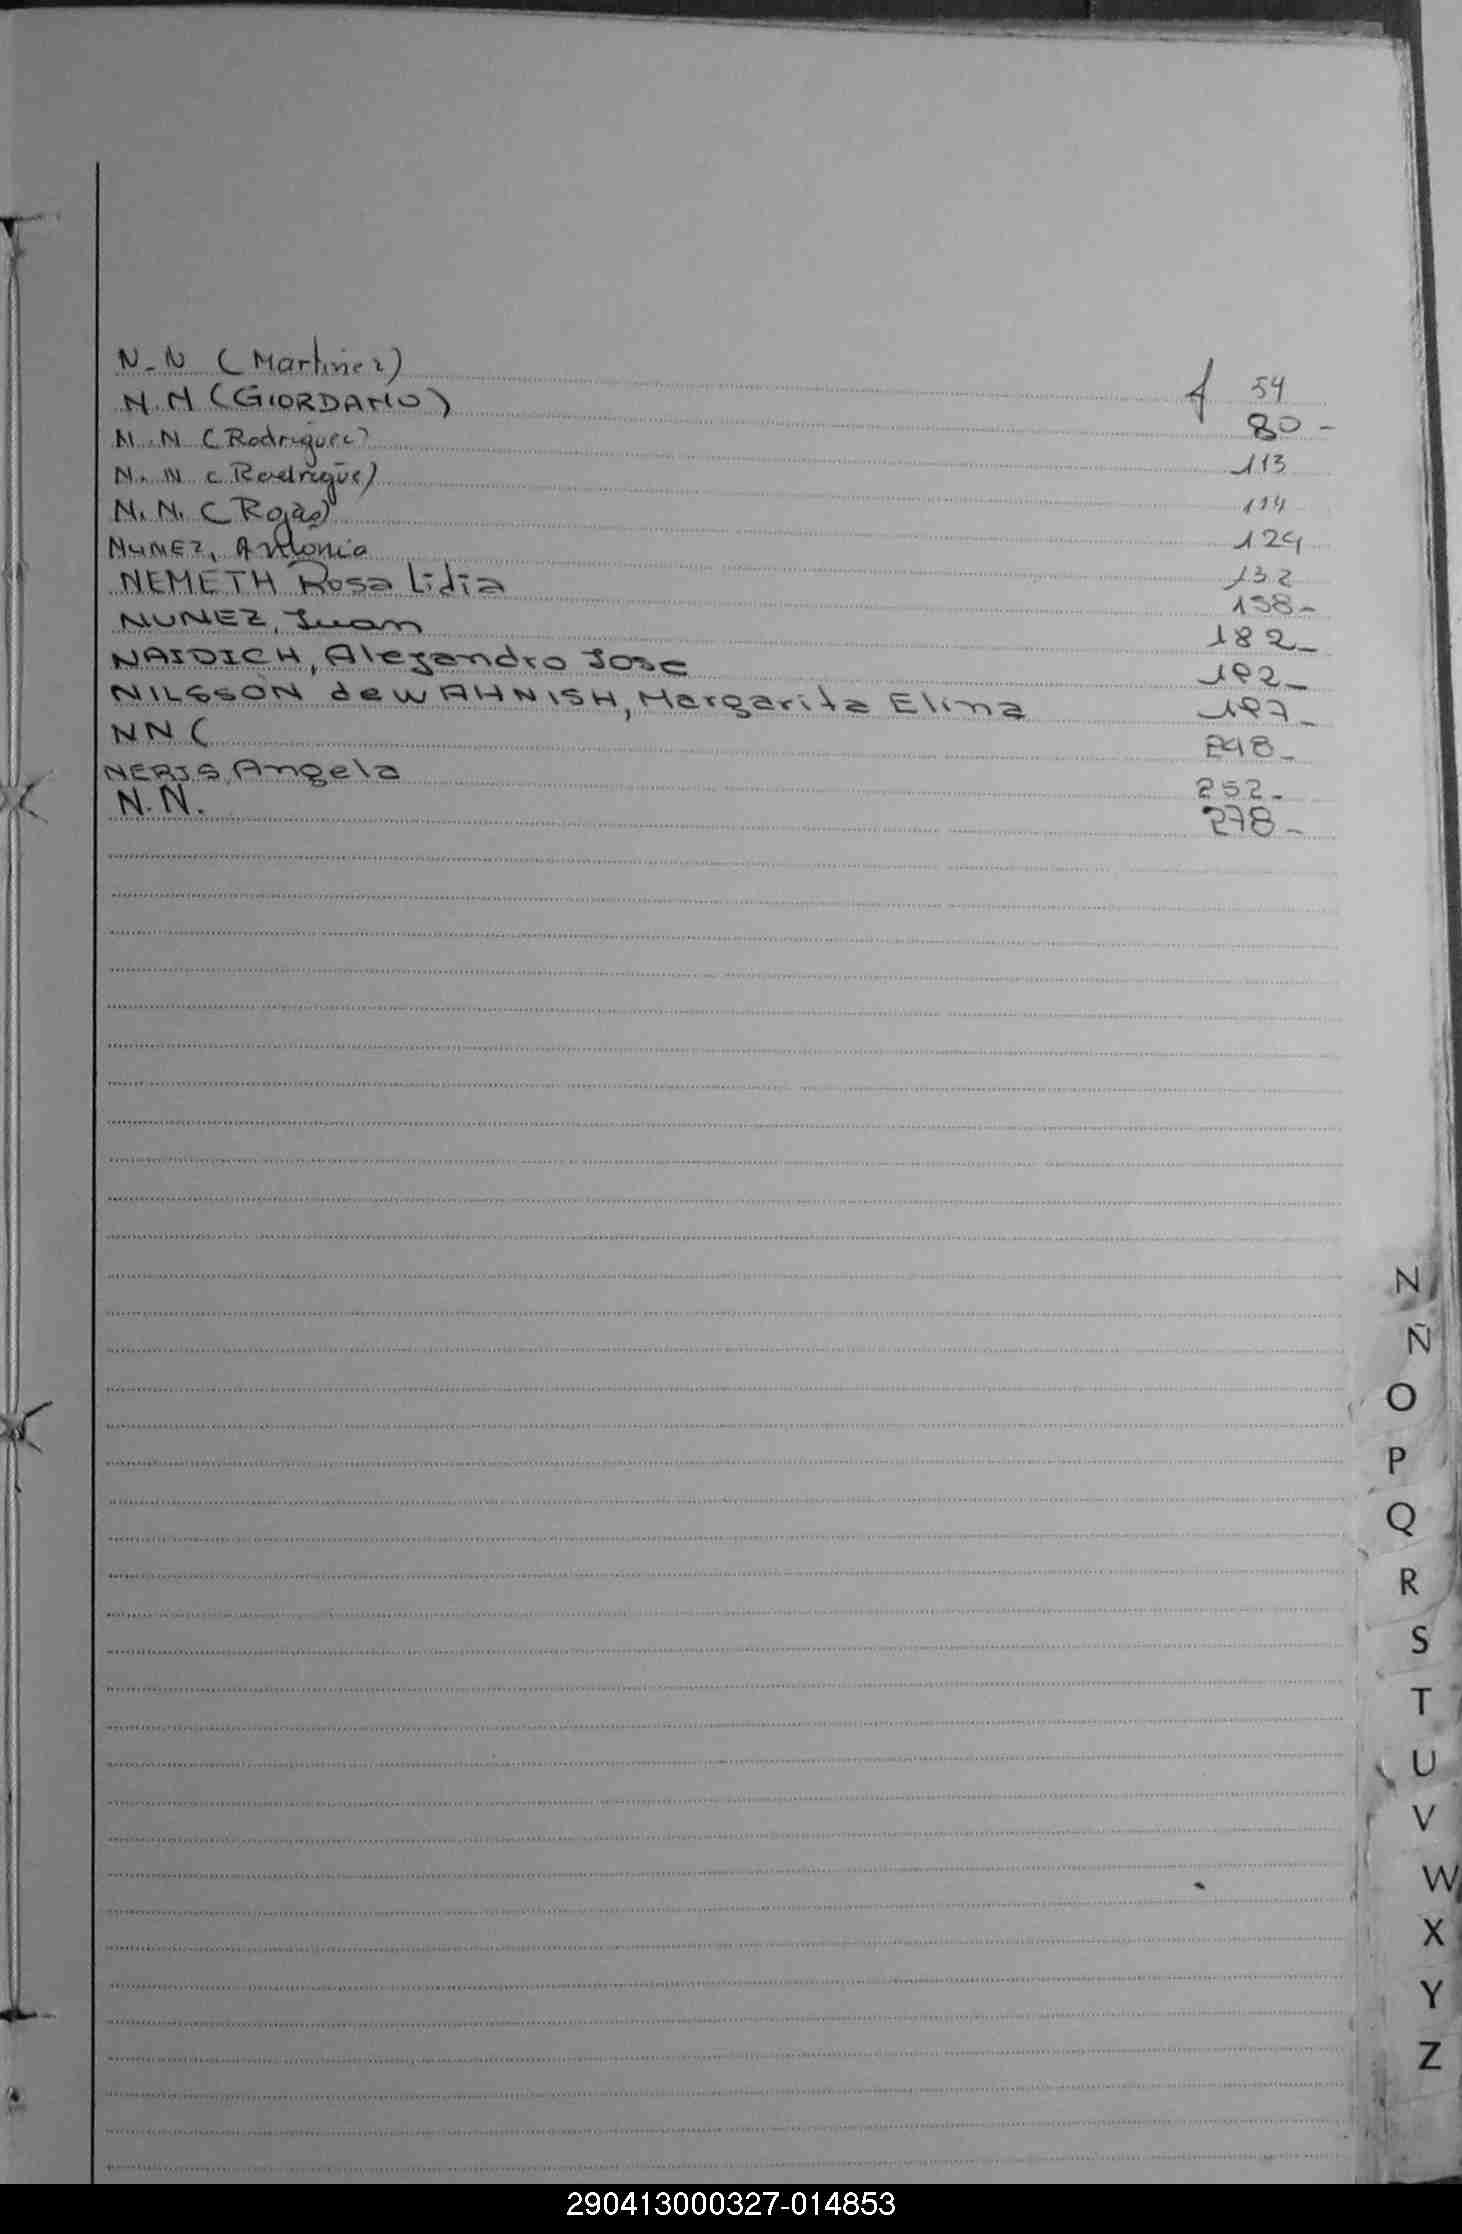 N-N (Martinez) f 54
N.N (GIORDANO) 80-
N.N (Rodriguez) 113
N.N (Rodrigue) 114
N.N. (Rojas) 124
NUNEZ, Antonia 132
NEMETH Rosa Lidia 158-
NUNEZ, Juan 182-
NAIDICH, Alejandro Jose 192-
NILSSON de WAHNISH, Margarita Elina 197-
NN ( 248-
NERIS, Angela 252-
N.N. 278-
N
Ñ
O
P
Q
R
S
T
U
V
W
X
Y
Z
290413000327-014853